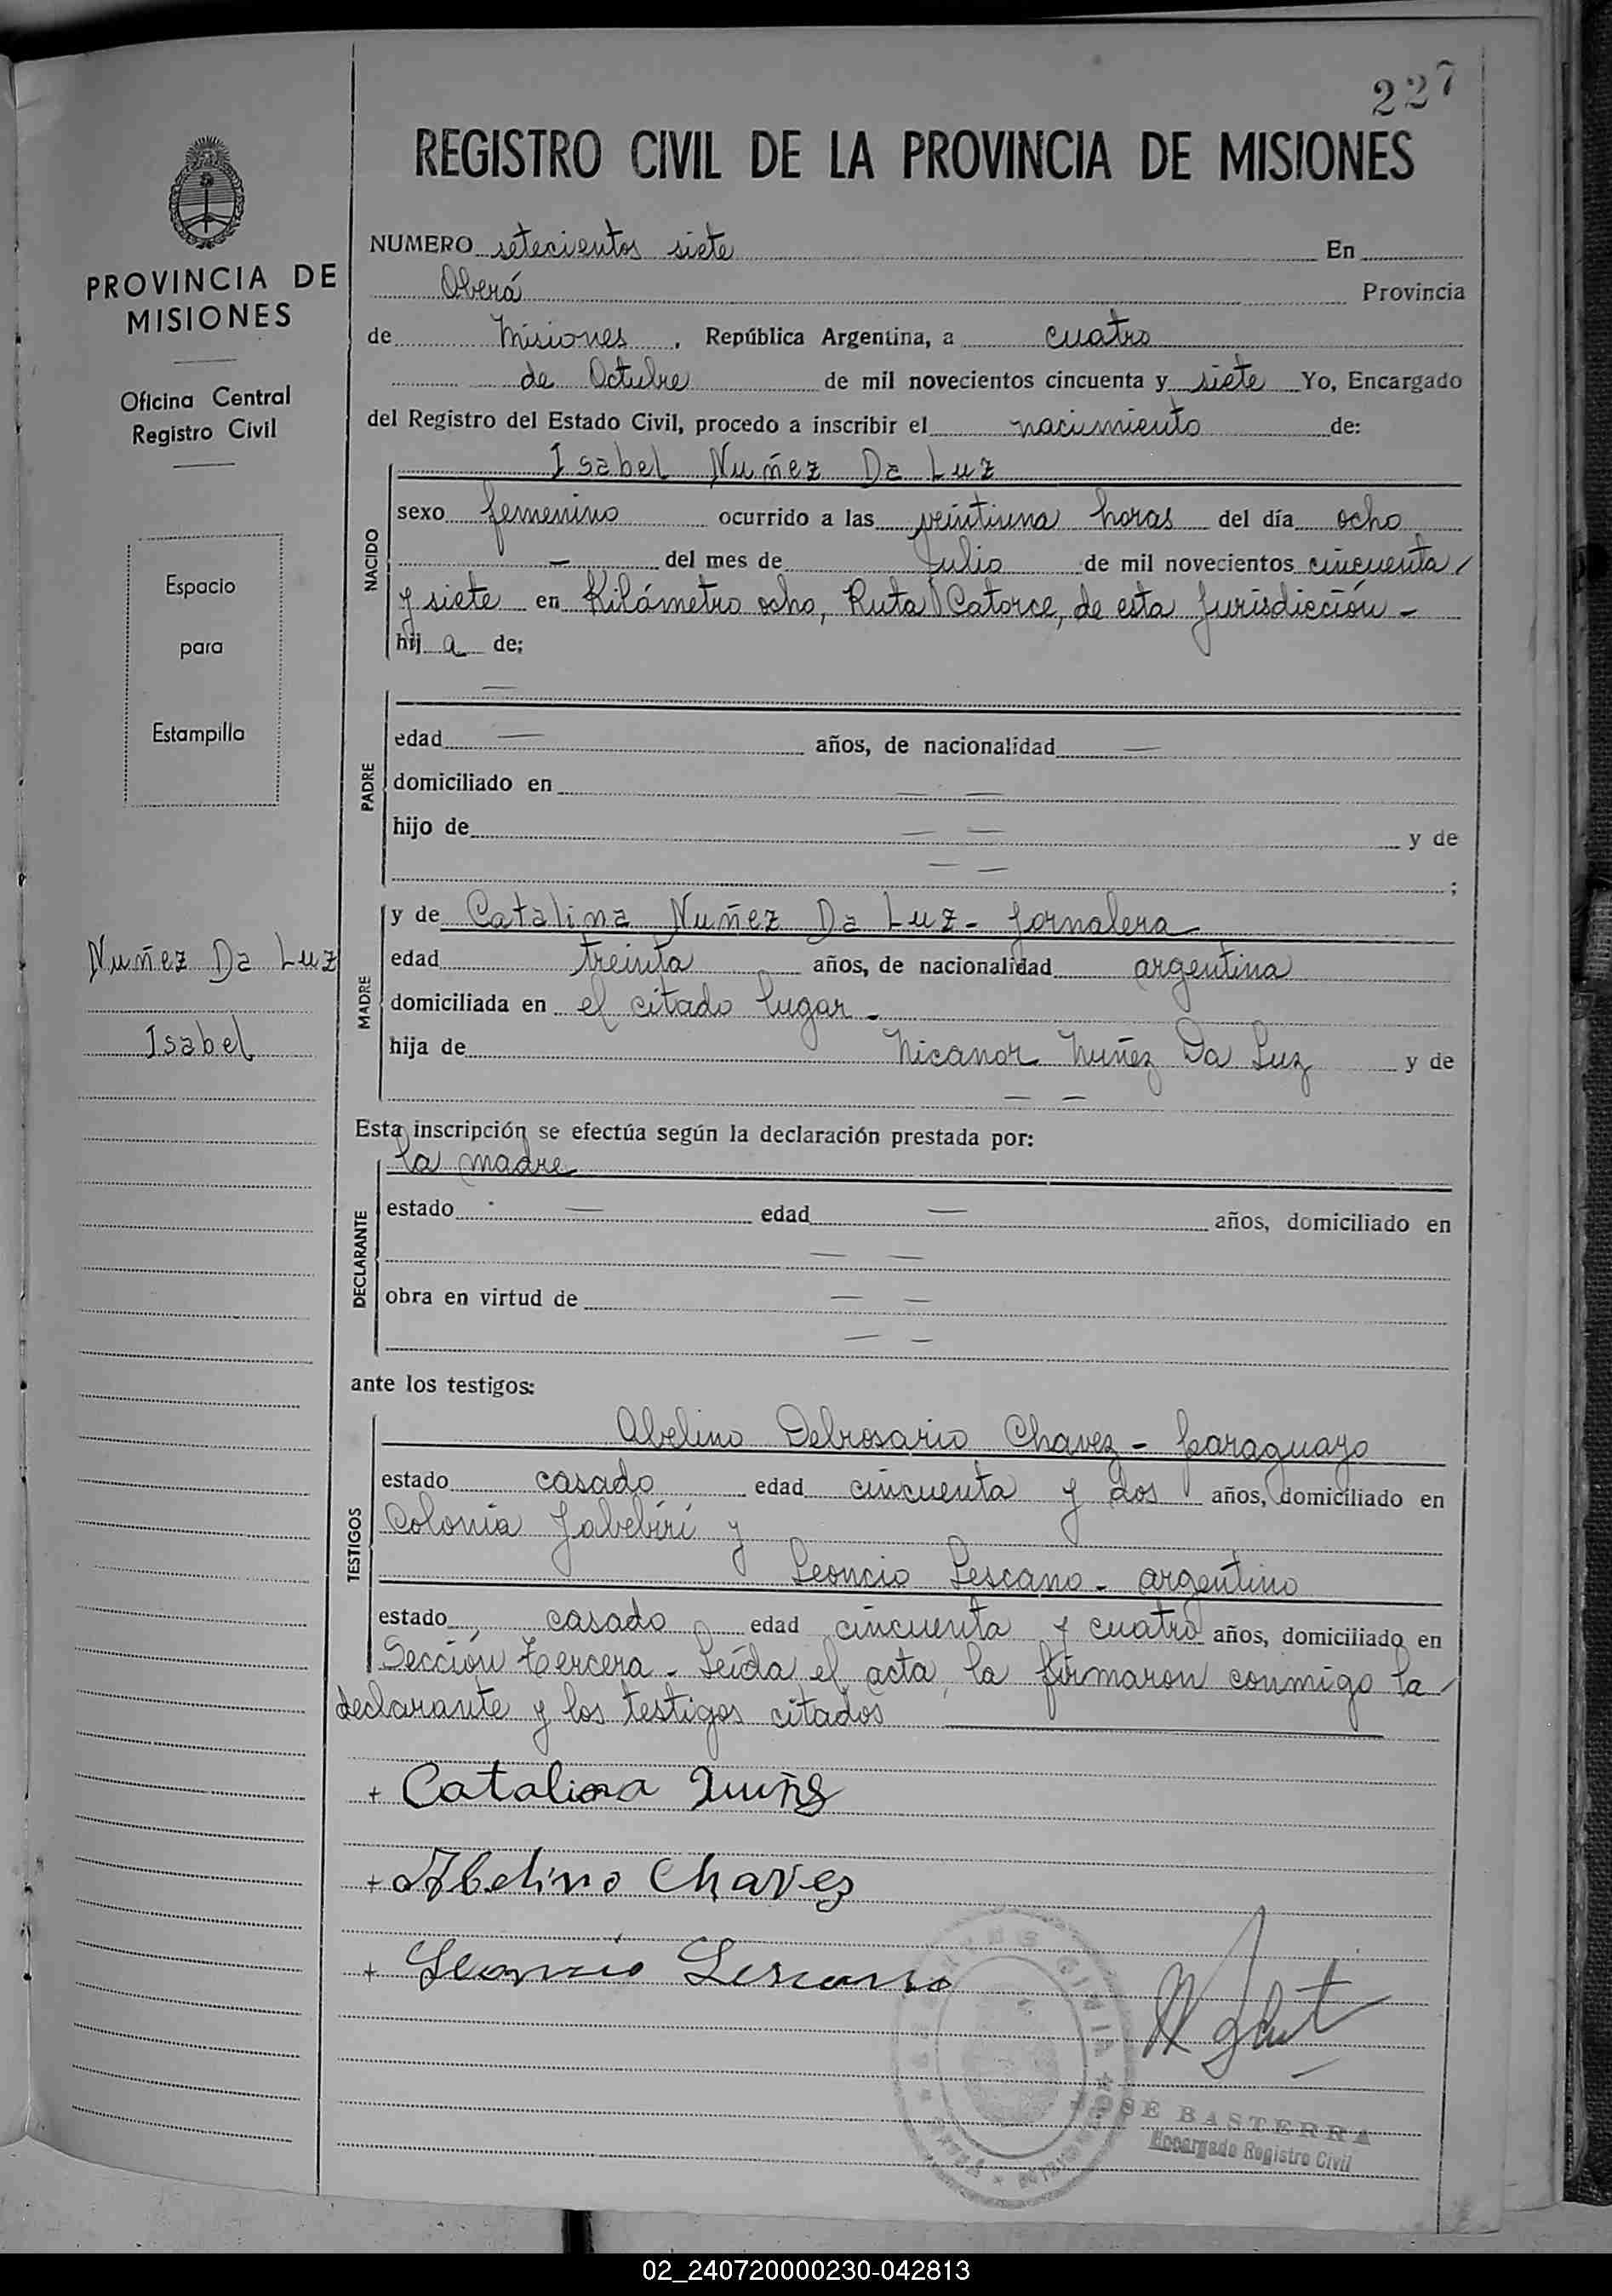 227
REGISTRO CIVIL DE LA PROVINCIA DE MISIONES
PROVINCIA DE
MISIONES
Oficina Central
Registro Civil
Espacio
para
Estampilla
Nuñez Da Luz
Isabel
NUMERO setecientos siete En
Oberá Provincia
de Misiones, República Argentina, a cuatro
de Octubre de mil novecientos cincuenta y siete Yo, Encargado
del Registro del Estado Civil, procedo a inscribir el nacimiento de:
NACIDO
Isabel Nuñez Da Luz
sexo femenino ocurrido a las veintiuna horas del día ocho
— del mes de Julio de mil novecientos cincuenta
y siete en Kilómetro ocho, Ruta Catorce, de esta Jurisdicción -
hij a de;
PADRE
—
edad — años, de nacionalidad —
domiciliado en — —
hijo de — — y de
— — ;
MADRE
y de Catalina Nuñez Da Luz - Jornalera
edad treinta años, de nacionalidad argentina
domiciliada en el citado lugar -
hija de Nicanor Nuñez Da Luz y de
— —
Esta inscripción se efectúa según la declaración prestada por:
DECLARANTE
la madre
estado — edad — años, domiciliado en
— —
obra en virtud de — —
— —
ante los testigos:
TESTIGOS
Abelino Delrosario Chavez - paraguayo
estado casado edad cincuenta y dos años, domiciliado en
Colonia Yabebirí y
Leoncio Lescano - argentino
estado casado edad cincuenta y cuatro años, domiciliado en
Sección tercera - Leída el acta, la firmaron conmigo la
declarante y los testigos citados
+ Catalina Nuñe
+ Abelino Chavez
+ Leoncio Lescano
JOSE BASTERRA
Encargado Registro Civil
02_240720000230-042813